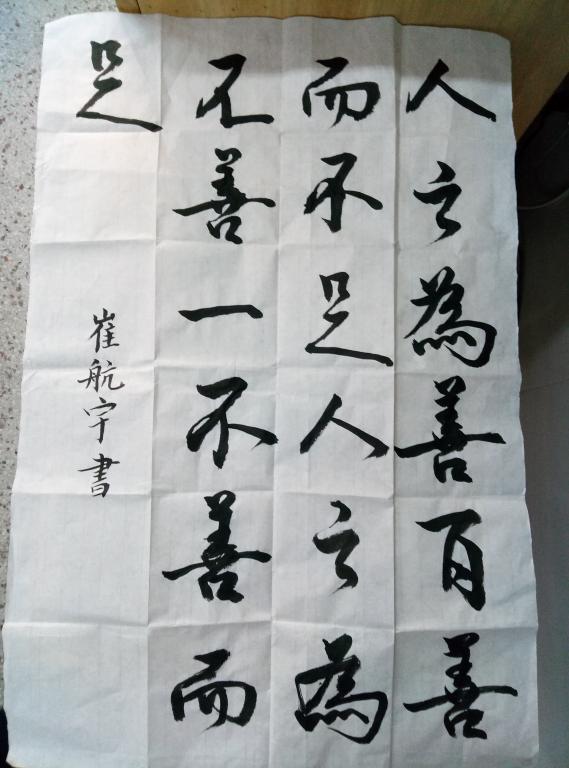 人之為善百善
而不足人之為
不善一不善而
足
崔航宇書